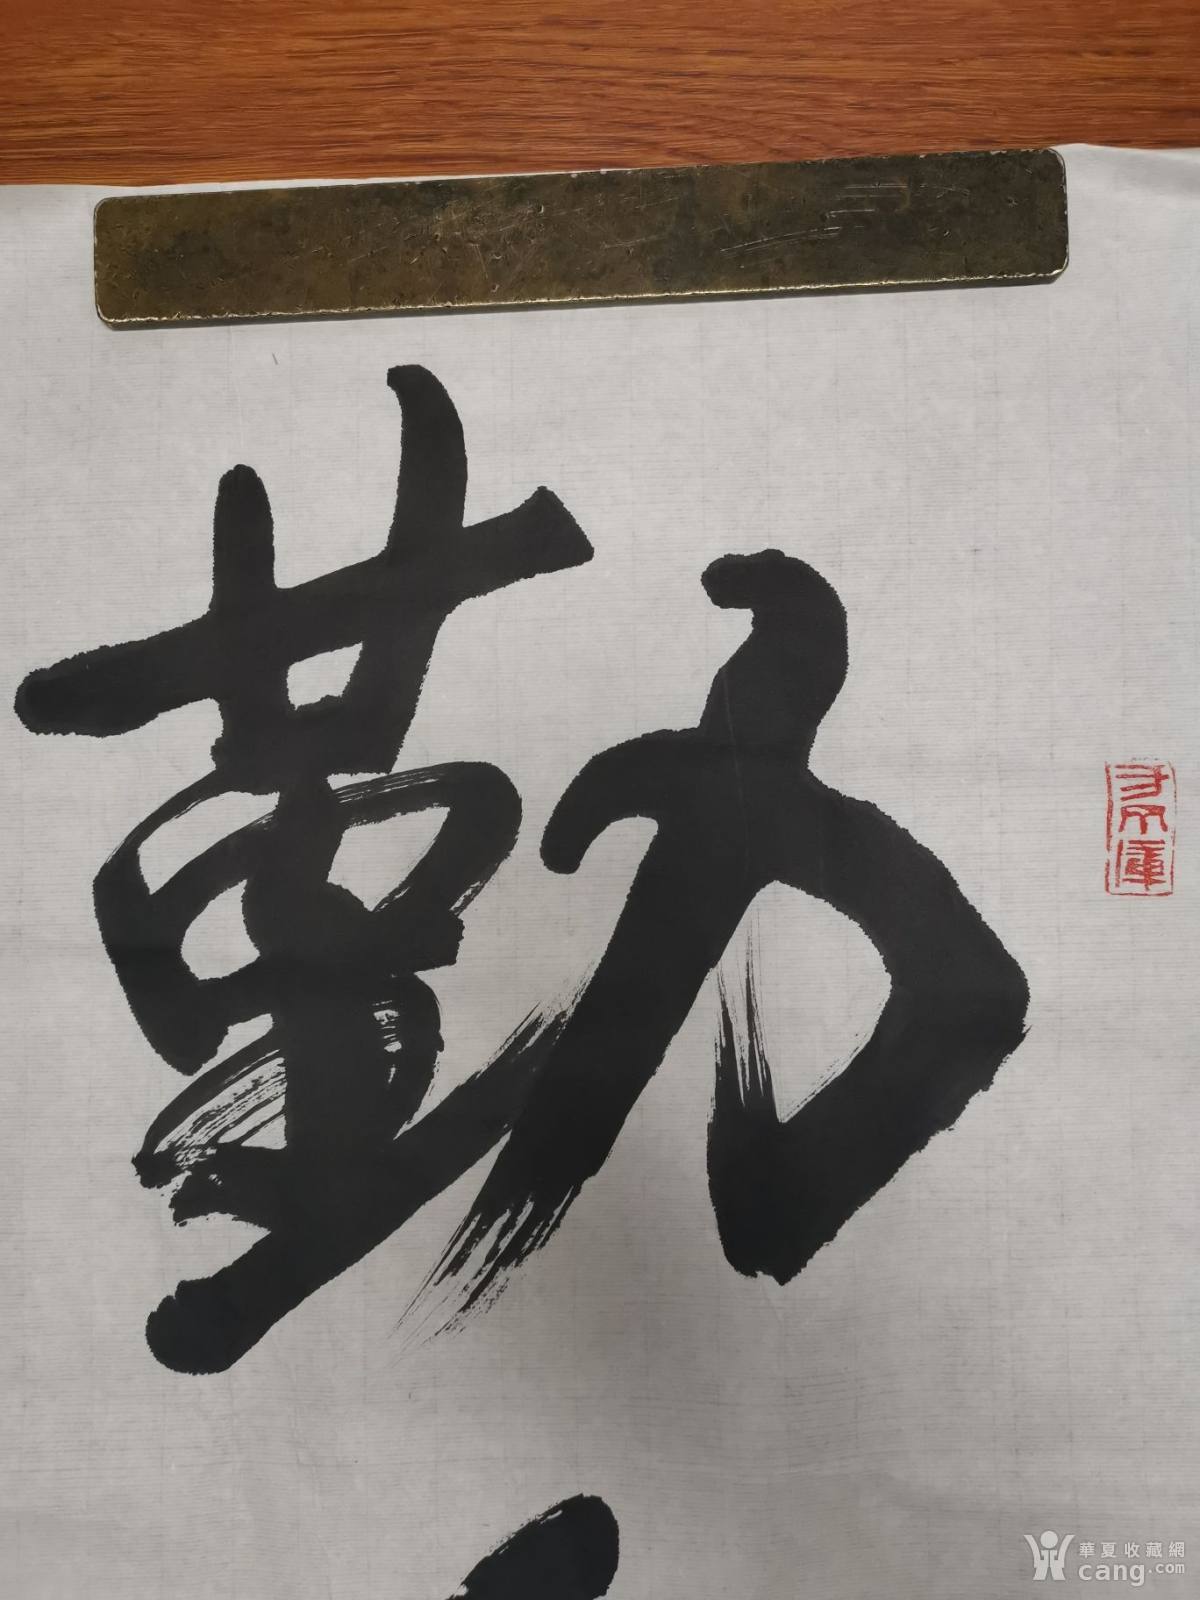 勤
華夏收藏網
cang.com